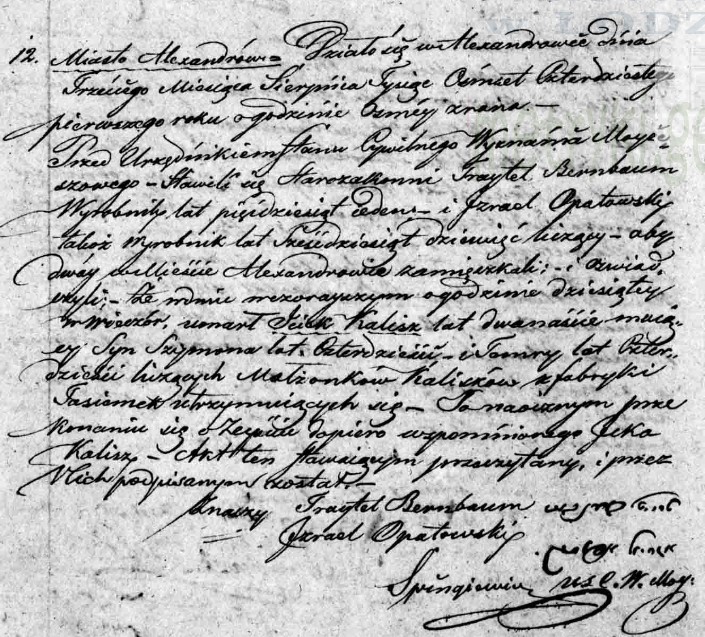 12. Miasto Alexandrów= Działo się w Alexandrowie dnia
Trzeciego Miesiąca Sierpnia Tysiąc Osmset Czterdziestego
pierwszego roku o godzinie Osmey zrana. —
Przed Urzędnikiem Stanu Cywilnego Wyznania Moyże-
szowego — Stawili się Starozakonni Fraytel Bernbaum
Wyrobnik lat pięćdziesiąt jeden — i Izrael Opatowski
takoż Wyrobnik lat Sześćdziesiąt dziewięć liczący — oby
dwáy w Mieście Alexandrowie zamięszkali; — i oświad,
czyli; — Że w dniu wczorayszym o godzinie dziesiątey
w Wieczór, umarł Icek Kalisz lat dwanaście maią,
cy Syn Szymona lat Czterdzieści — i Temry lat Czter,
dzieści liczących Małżonków Kaliszów z fabryki
Tasiemek utrzymuiących się — Po naocznym prze
konaniu się o Zeyściu dopiero wspomnionego Icka
Kalisz — Akt ten stawaiącym przeczytany, i przez
Nich podpisanym został. —
Fraytel Bernbaum
Izrael Opatowski
U S C. W. Moy: